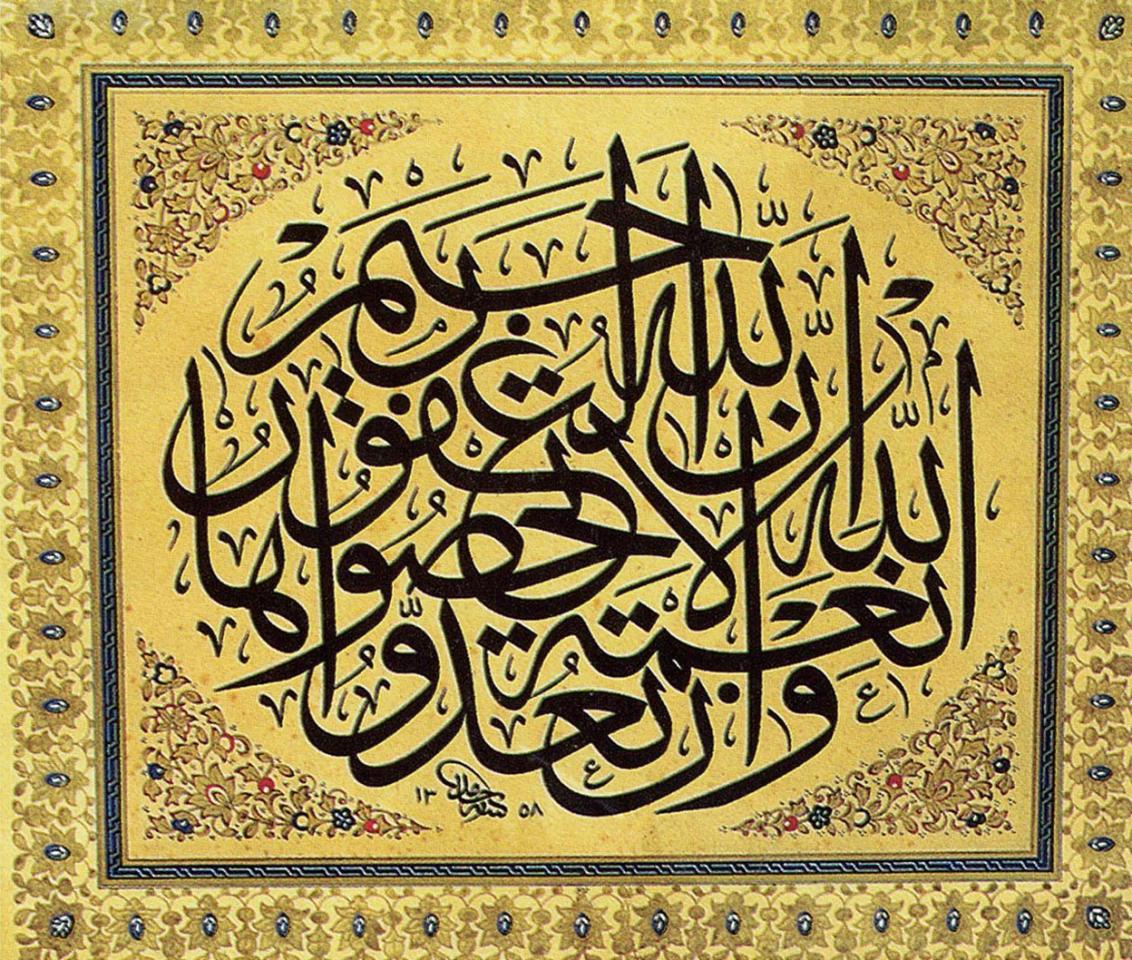 وَإِنْ تَعُدُّوا نِعْمَةَ اللّٰهِ لَا تُحْصُوهَا إِنَّ اللّٰهَ لَغَفُورٌ رَحِيمٌ
١٣ ٥٨